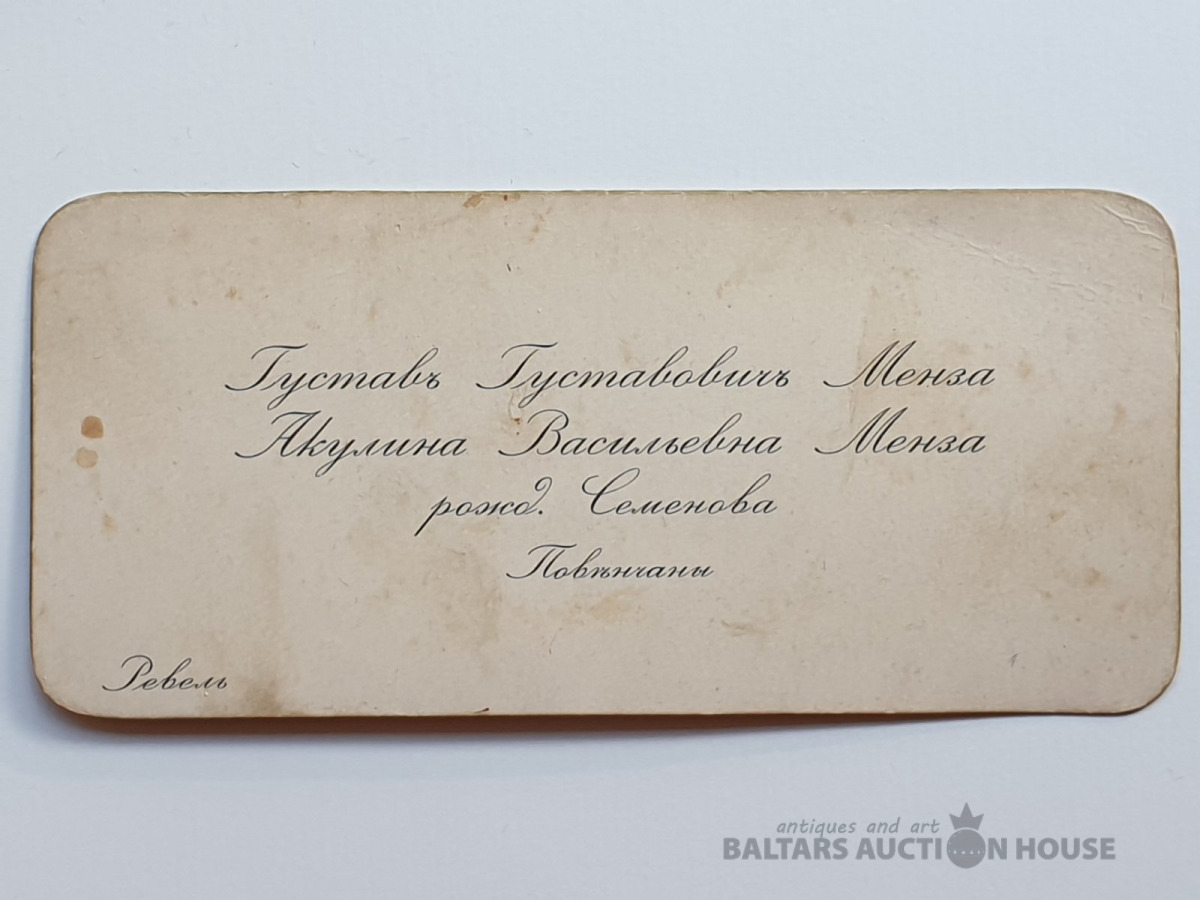 Густавъ Густавовичъ Менза
Акулина Васильевна Менза
рожд. Семенова
Повѣнчаны
Ревель
antiques and art
BALTARS AUCTION HOUSE